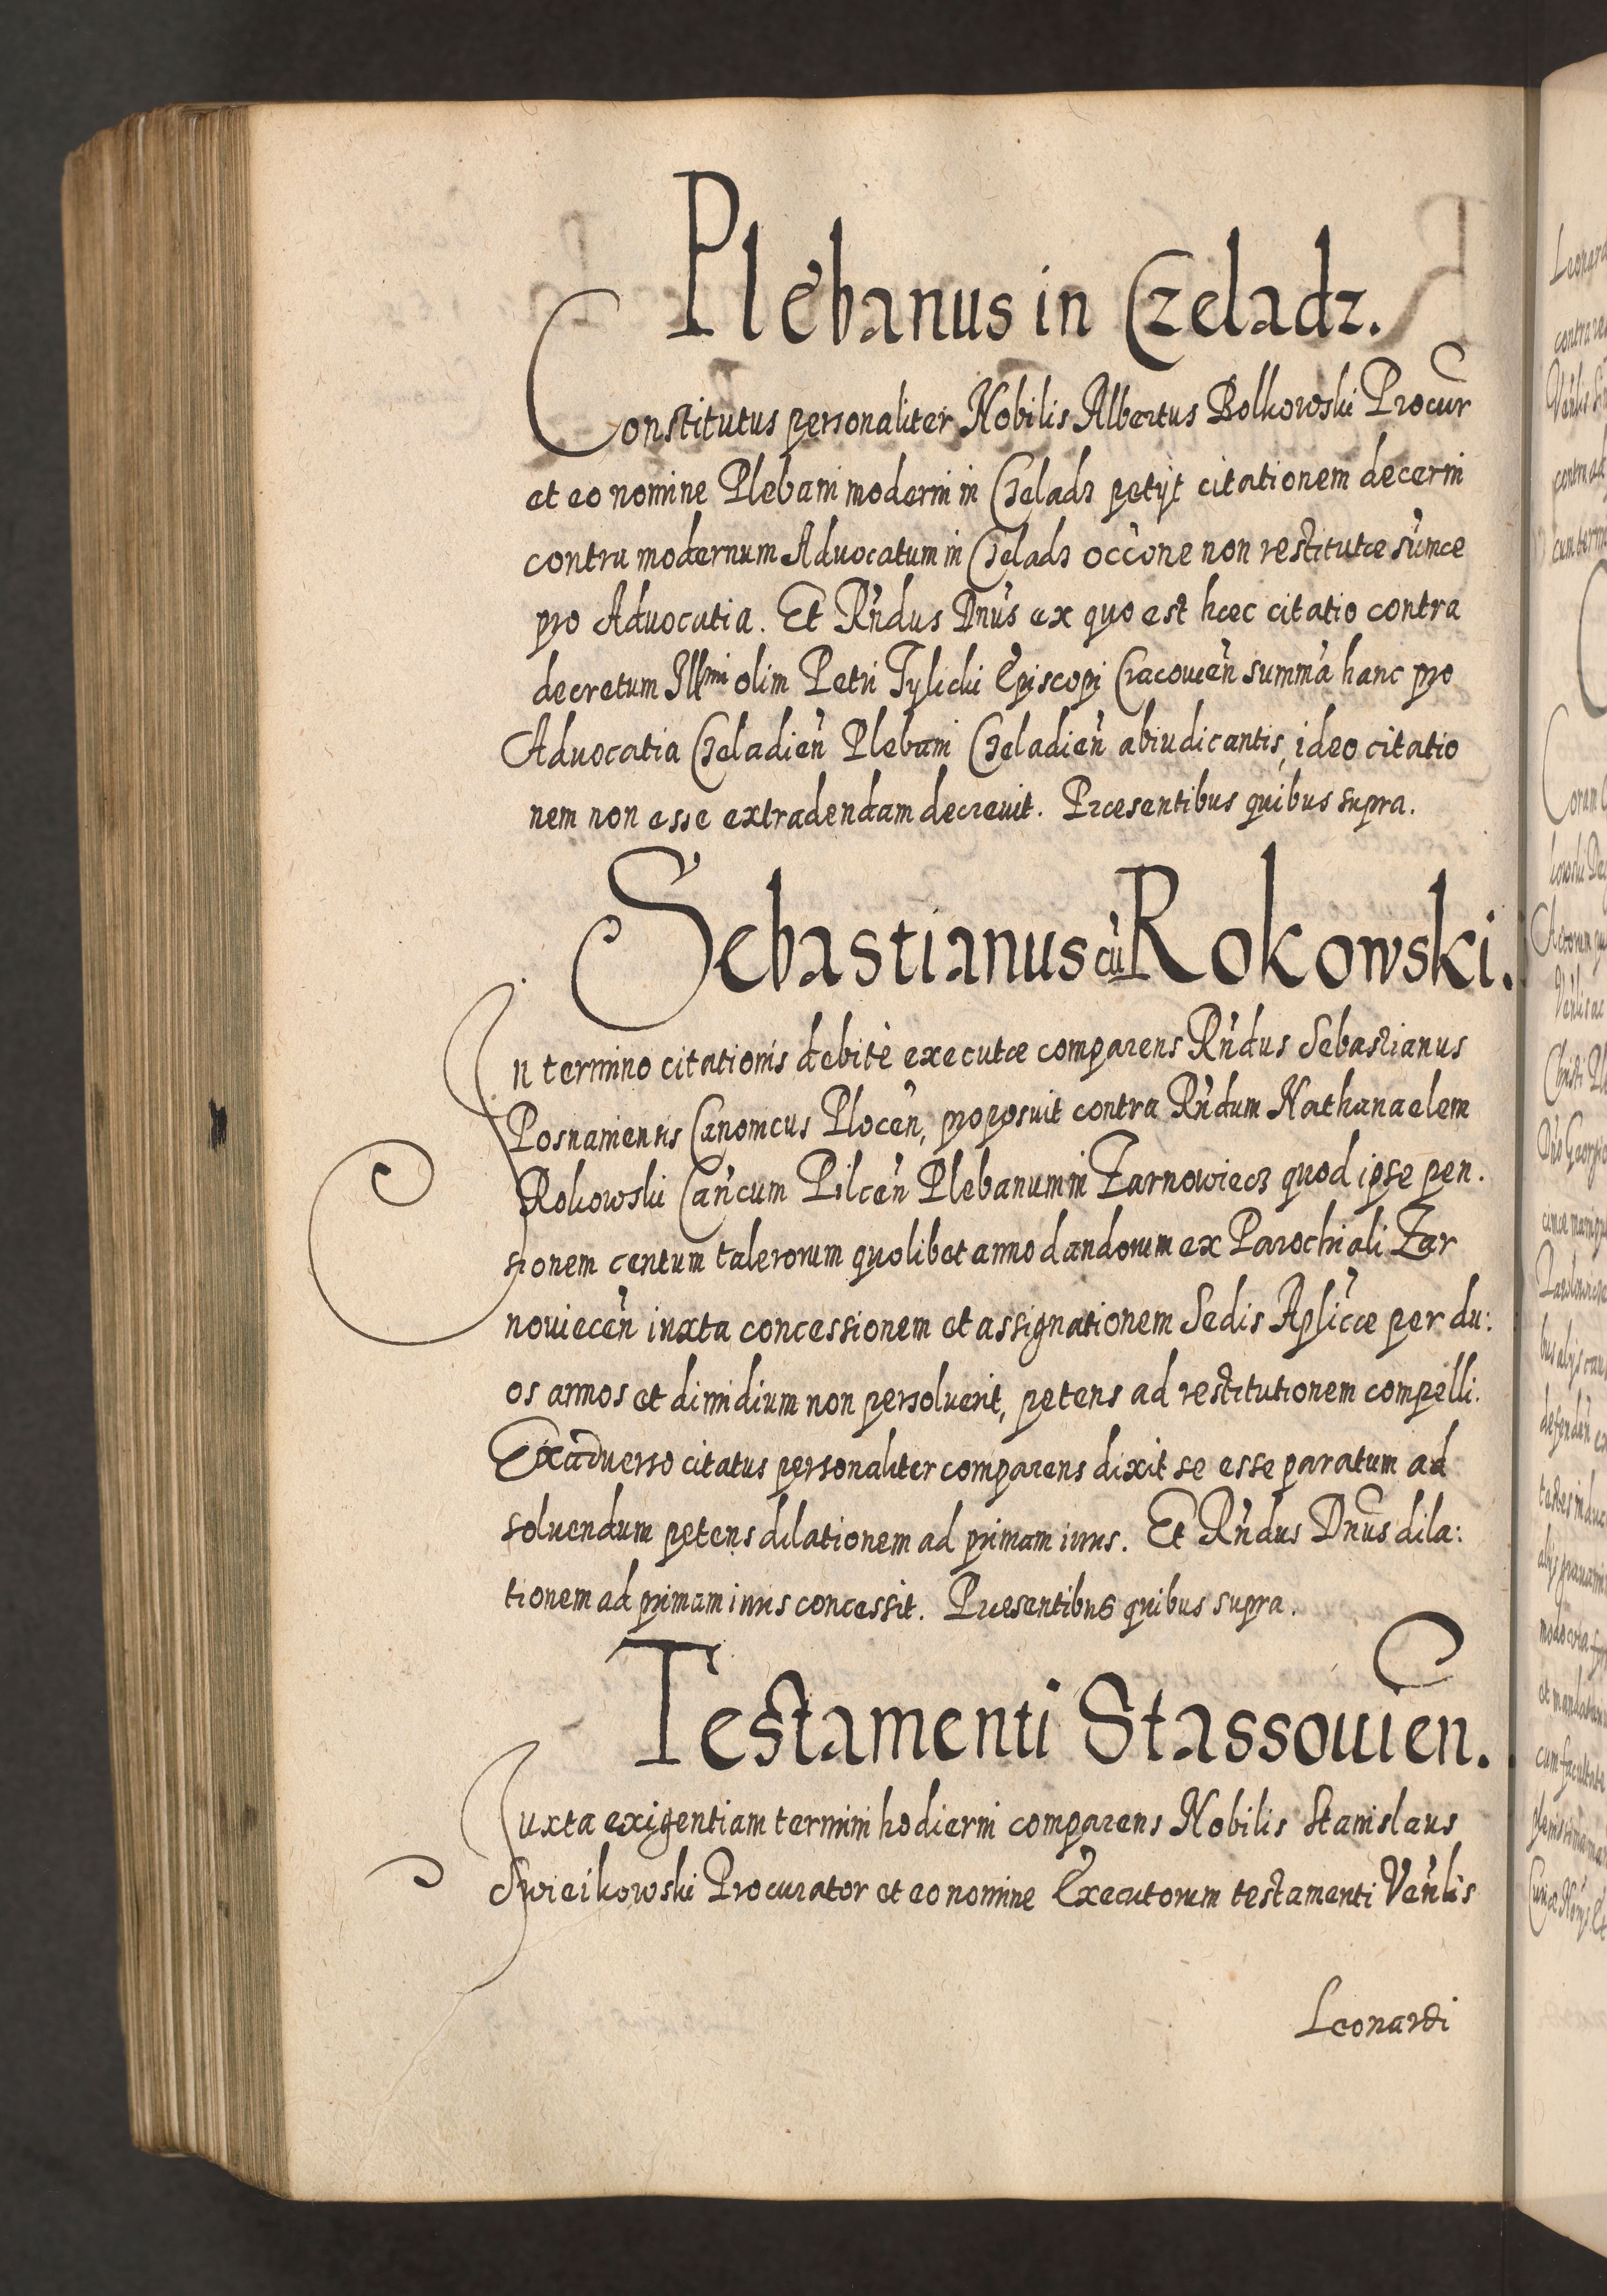 Plebanus in Czeladz.
Constitutus personaliter Nobilis Albertus Bolkowski Procur
et eo nomine Plebani moderni in Czeladz petijt citationem decerni
contra modernum Advocatum in Czeladz occõne non restitutæ sum̃æ
pro Advocatia. Et Rñdus Dñus ex quo est hæc citatio contra
decretum Ill^mi olim Petri Tylicki Episcopi Cracovień summã hanc pro
Advocatia Czeladień Plebani Czeladień abiudicantis, ideo citatio
nem non esse extradendam decrevit. Præsentibus quibus supra.
Sebastianus cũ Rokowski.
In termino citationis debitè executæ comparens Rñdus Sebastianus
Posnaniensis Canonicus Plocen̄, proposuit contra Rñdum Nathanaelem
Rokowski Cañcum Pilcen̄ Plebanum in Zarnowiecz quod ipse pen.
sionem centum talerorum quolibet anno dandorum ex Parochiali Zar
noviecen̄ iuxta concessionem et assignationem Sedis Aplicæ per du:
os annos et dimidium non persoluerit, petens ad restitutionem compelli.
Ex adverso citatus personaliter comparens dixit se esse paratum ad
soluendum petens dilationem ad primam iuris. Et Rñdus Dñus dila:
tionem ad primam iuris concessit. Præsentibus quibus supra.
Testamenti Stassovien.
Juxta exigentiam termini hodierni comparens Nobilis Stanislaus
Swieikowski Procurator et eo nomine Executorum testamenti Veñlis
Leonardi